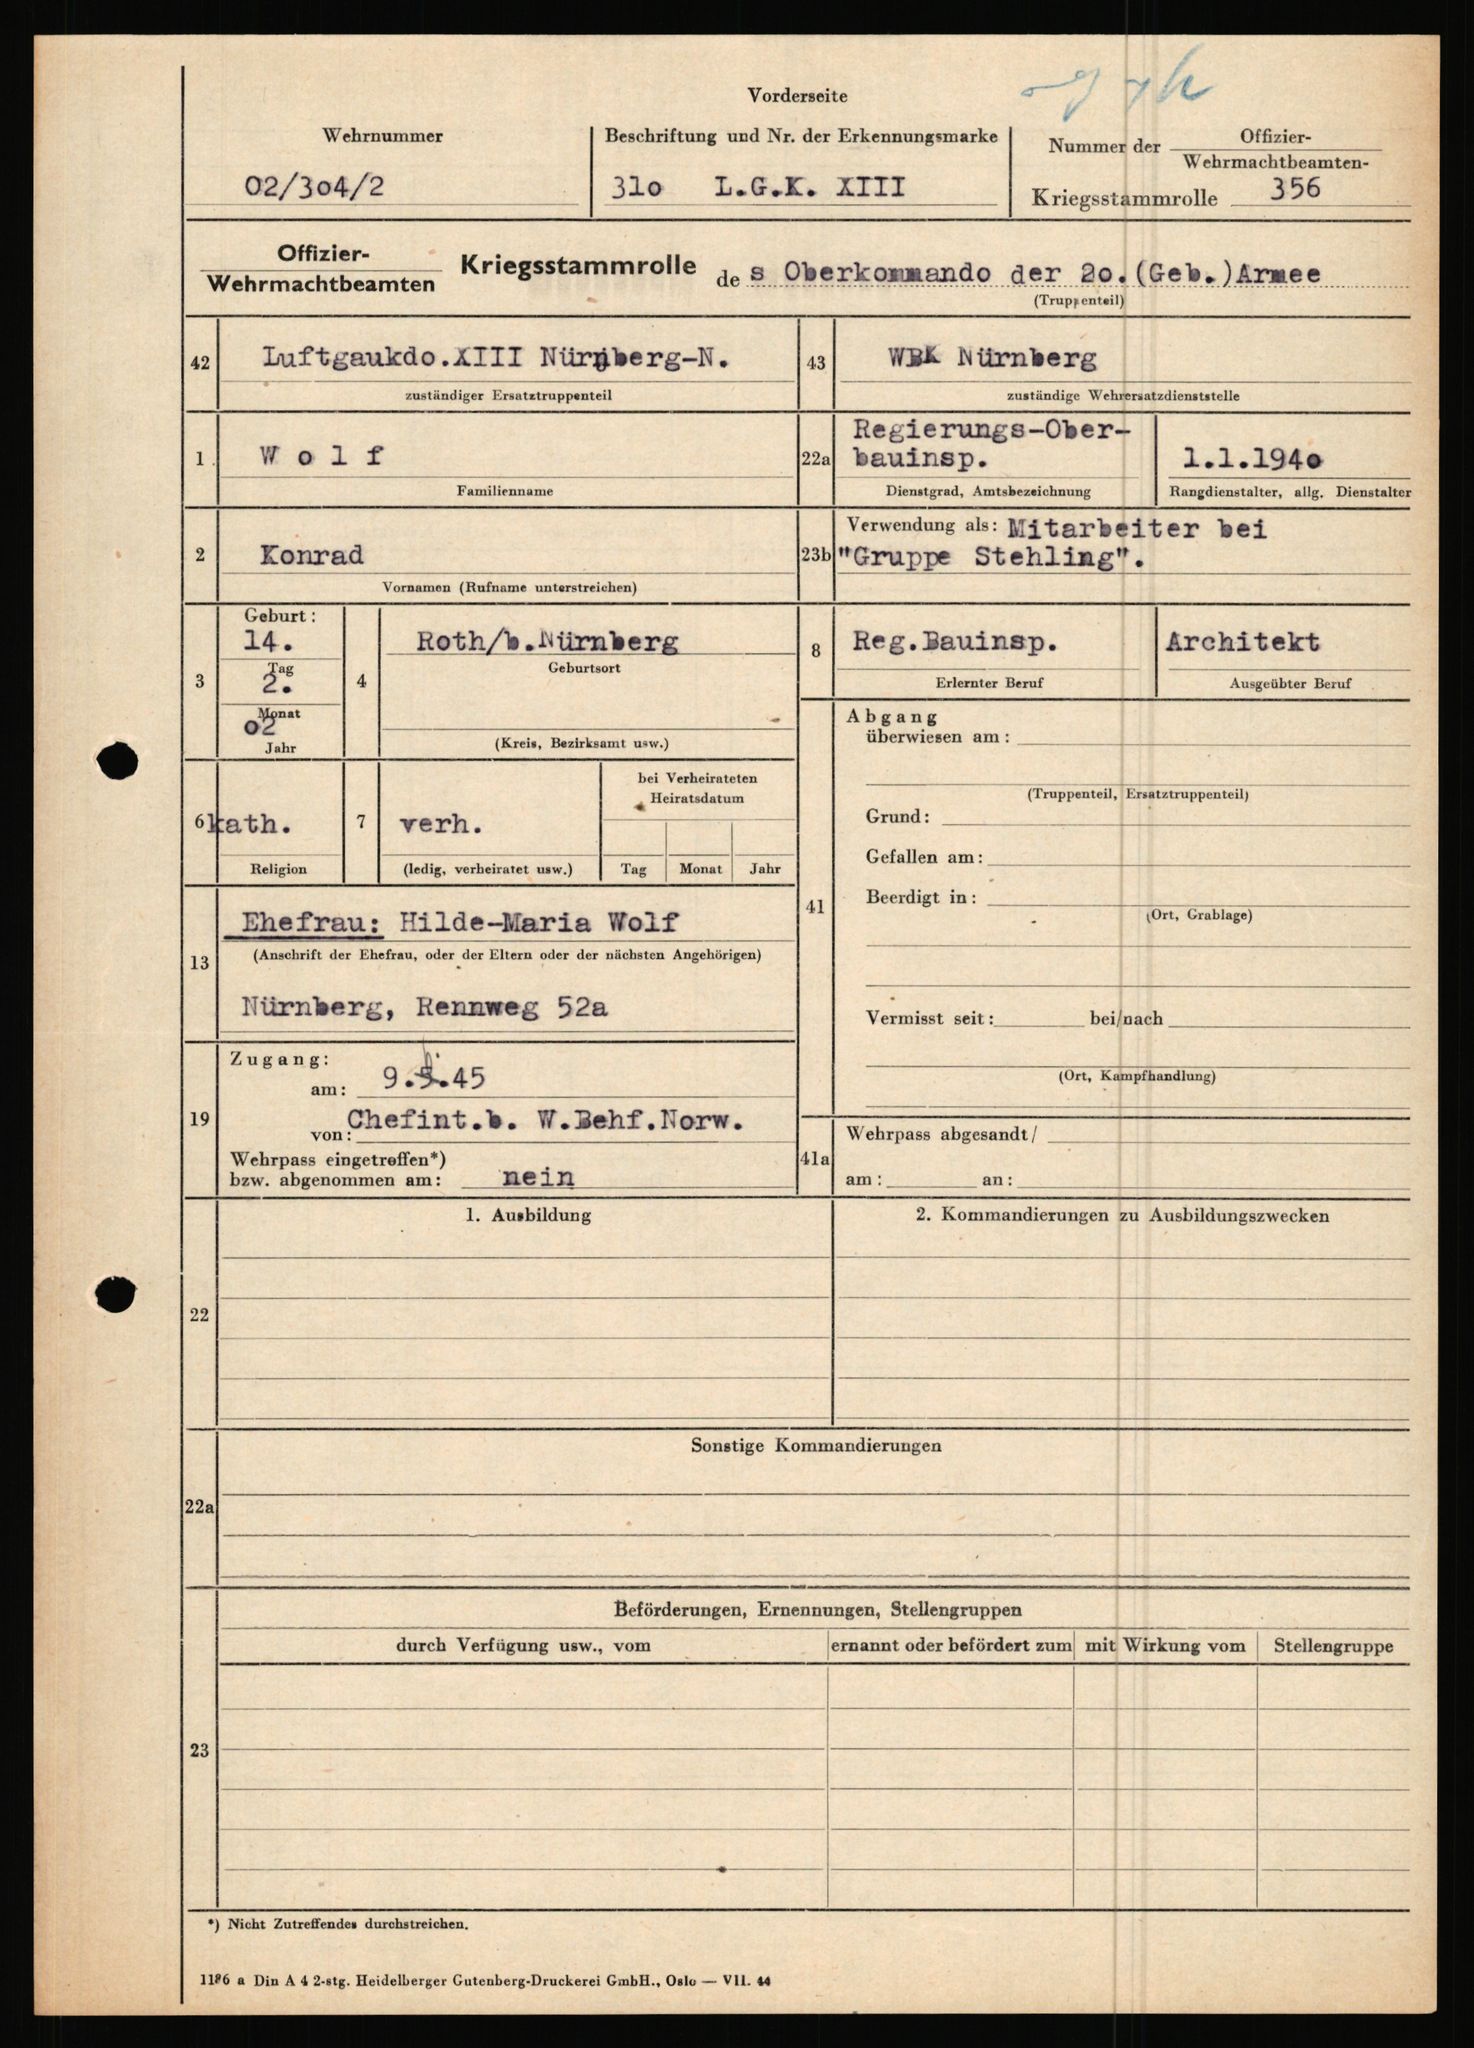 Vorderseite
Wehrnummer
02/304/2
Beschriftung und Nr. der Erkennungsmarke
310 L.G.K. XIII
Nummer der Offizier-
Wehrmachtbeamten-
Kriegsstammrolle 356
Offizier-
Wehrmachtbeamten
Kriegsstammrolle des Oberkommando der 2o.(Geb.)Armee
(Truppenteil)
42 Luftgaukdo.XIII Nürnberg-N.
zuständiger Ersatztruppenteil
43 WBK Nürnberg
zuständige Wehrersatzdienststelle
1 W o l f
Familienname
22a Regierungs-Ober-
bauinsp.
Dienstgrad, Amtsbezeichnung
1.1.194o
Rangdienstalter, allg. Dienstalter
2 Konrad
Vornamen (Rufname unterstreichen)
23b Verwendung als: Mitarbeiter bei
"Gruppe Stehling".
3 Geburt:
14.
Tag
2.
Monat
o2
Jahr
4 Roth/b.Nürnberg
Geburtsort
(Kreis, Bezirksamt usw.)
8 Reg.Bauinsp.
Erlernter Beruf
Architekt
Ausgeübter Beruf
6 kath.
Religion
7 verh.
(ledig, verheiratet usw.)
bei Verheirateten
Heiratsdatum
Tag Monat Jahr
13 Ehefrau: Hilde-Maria Wolf
(Anschrift der Ehefrau, oder der Eltern oder der nächsten Angehörigen)
Nürnberg, Rennweg 52a
19 Zugang:
am: 9.5.45
von: Chefint.b. W.Behf.Norw.
Wehrpass eingetroffen*)
bzw. abgenommen am: nein
41 Abgang
überwiesen am:
(Truppenteil, Ersatztruppenteil)
Grund:
Gefallen am:
Beerdigt in:
(Ort, Grablage)
Vermisst seit: bei/nach
(Ort, Kampfhandlung)
41a Wehrpass abgesandt/
am: an:
22 1. Ausbildung
2. Kommandierungen zu Ausbildungszwecken
22a Sonstige Kommandierungen
23 Beförderungen, Ernennungen, Stellengruppen
durch Verfügung usw., vom
ernannt oder befördert zum
mit Wirkung vom
Stellengruppe
*) Nicht Zutreffendes durchstreichen.
1186 a Din A 4 2-stg. Heidelberger Gutenberg-Druckerei GmbH., Oslo — VII. 44